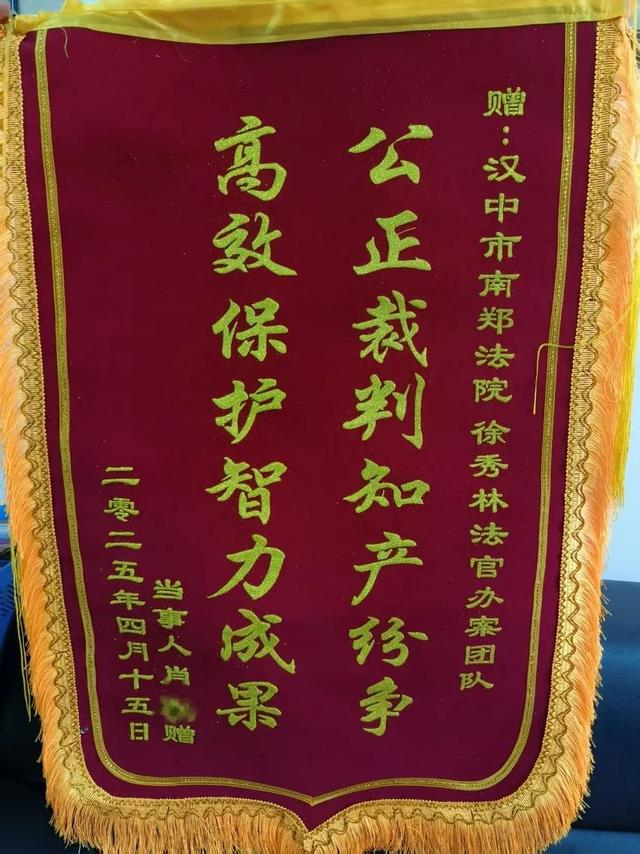 赠：汉中市南郑法院 徐秀林法官办案团队
公正裁判知产纷争
高效保护智力成果
当事人肖 赠
二零二五年四月十五日